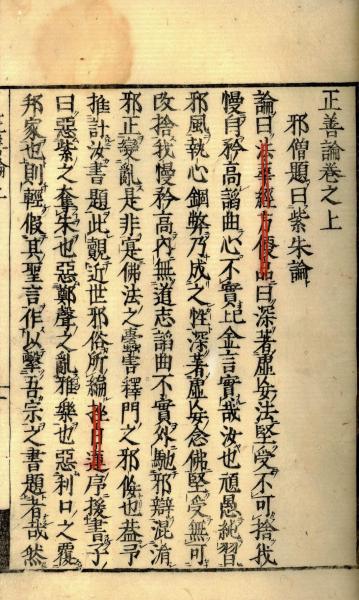 正善論卷之上
邪僧題曰紫朱論
論曰法華經方便品曰深著虛妄法堅受不可捨我
慢自矜高諂曲心不實已金言實哉汝也頑愚純習
邪風執心鋼弊乃成之性深著虛妄念佛堅受無可
改捨我慢矜高內無道志諂曲不實外馳邪辯混淆
邪正變亂是非寔佛法之蠹害釋門之邪俀也葢予
推計汝書題此觀近世邪俗所編挫日蓮序援書予
曰惡紫之奪朱也惡鄭聲之亂雅樂也惡利口之覆
邦家也則輕假其聖言作以擊吾宗之書題者哉然